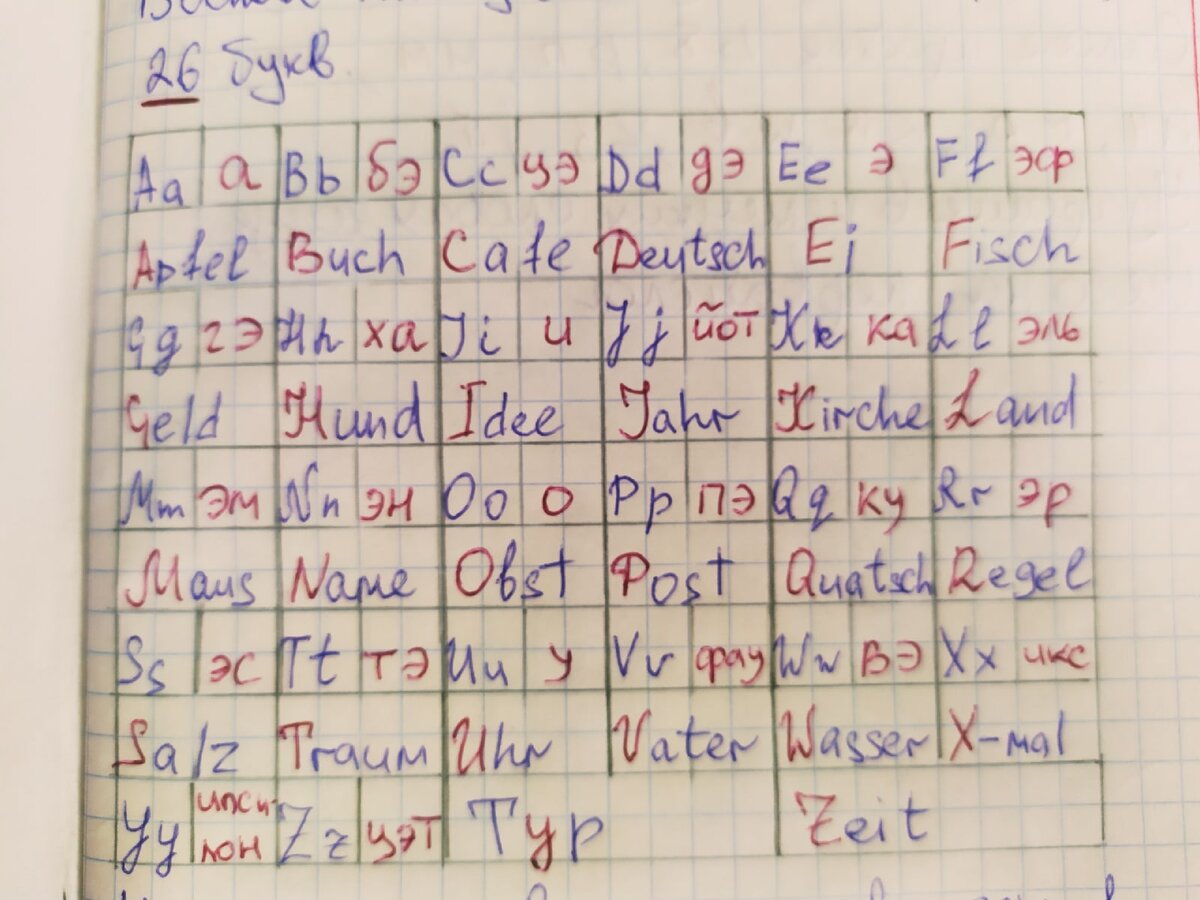 26 букв
Aa а Bb бэ Cc цэ Dd дэ Ee э Ff эф
Apfel Buch Cafe Deutsch Ei Fisch
Gg гэ Hh ха Ii и Jj йот Kk ка Ll эль
Geld Hund Idee Jahr Kirche Land
Mm эм Nn эн Oo о Pp пэ Qq ку Rr эр
Maus Name Obst Post Quatsch Regel
Ss эс Tt тэ Uu у Vv фау Ww вэ Xx икс
Salz Traum Uhr Vater Wasser X-mal
Yy ипси-лон Zz цэт Typ Zeit